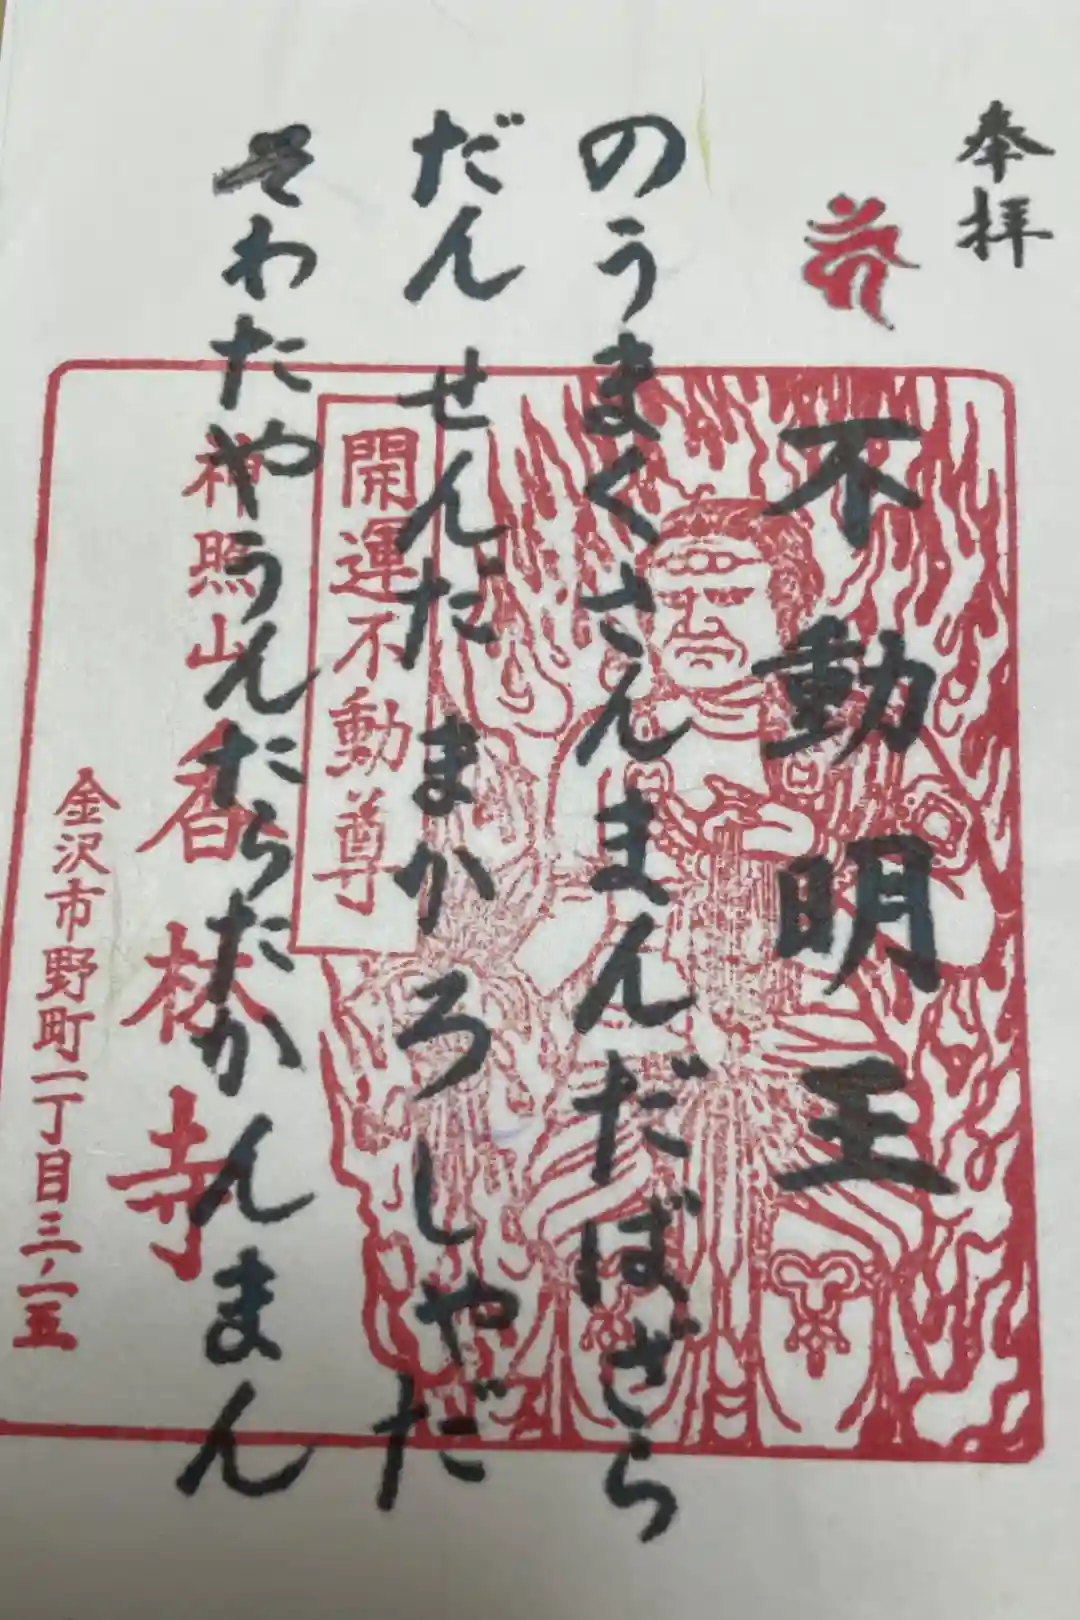 奉拝
不動明王
のうまくさんまんだばざら
だん せんだ まかろしやだ
そわたやうんたらたかんまん
開運不動尊
神照山
香林寺
金沢市野町一丁目三‐一五